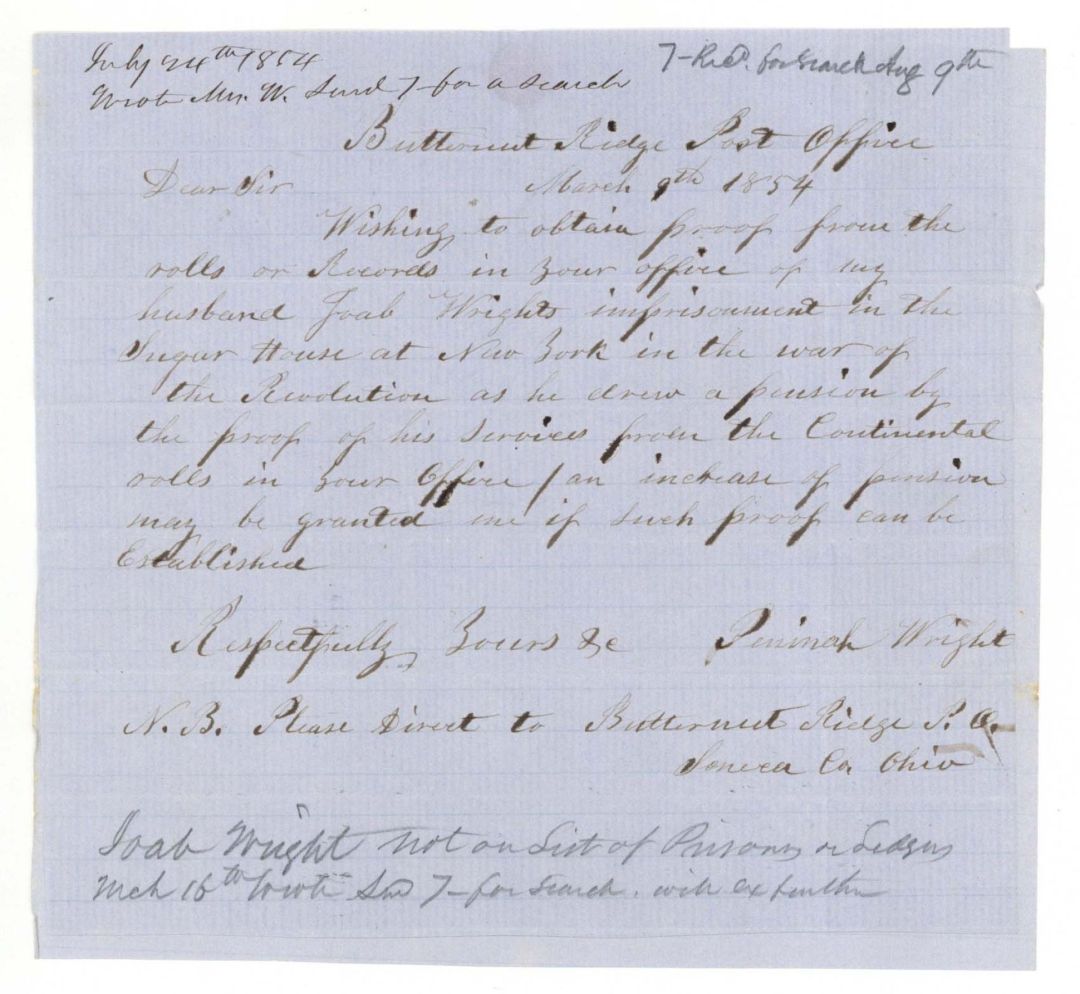 July 24th 1854
Wrote Mrs. W. Send 7- for a search
7- Recd. for Search Aug 9th
Butternut Ridge Post Office
Dear Sir March 9th 1854
Wishing to obtain proof from the
rolls or Records in your office of my
husband Joab Wrights imprisonment in the
Sugar House at New York in the war of
the Revolution as he drew a pension by
the proof of his Services from the Continental
rolls in your Office / an increase of pension
may be granted me if such proof can be
Established
Respectfully Yours &c Peninah Wright
N.B. Please Direct to Butternut Ridge P. O.
Seneca Co Ohio
Joab Wright not on List of Prisoners or Ledgers
Mch 16th Wrote Send 7- for Search. will ex further